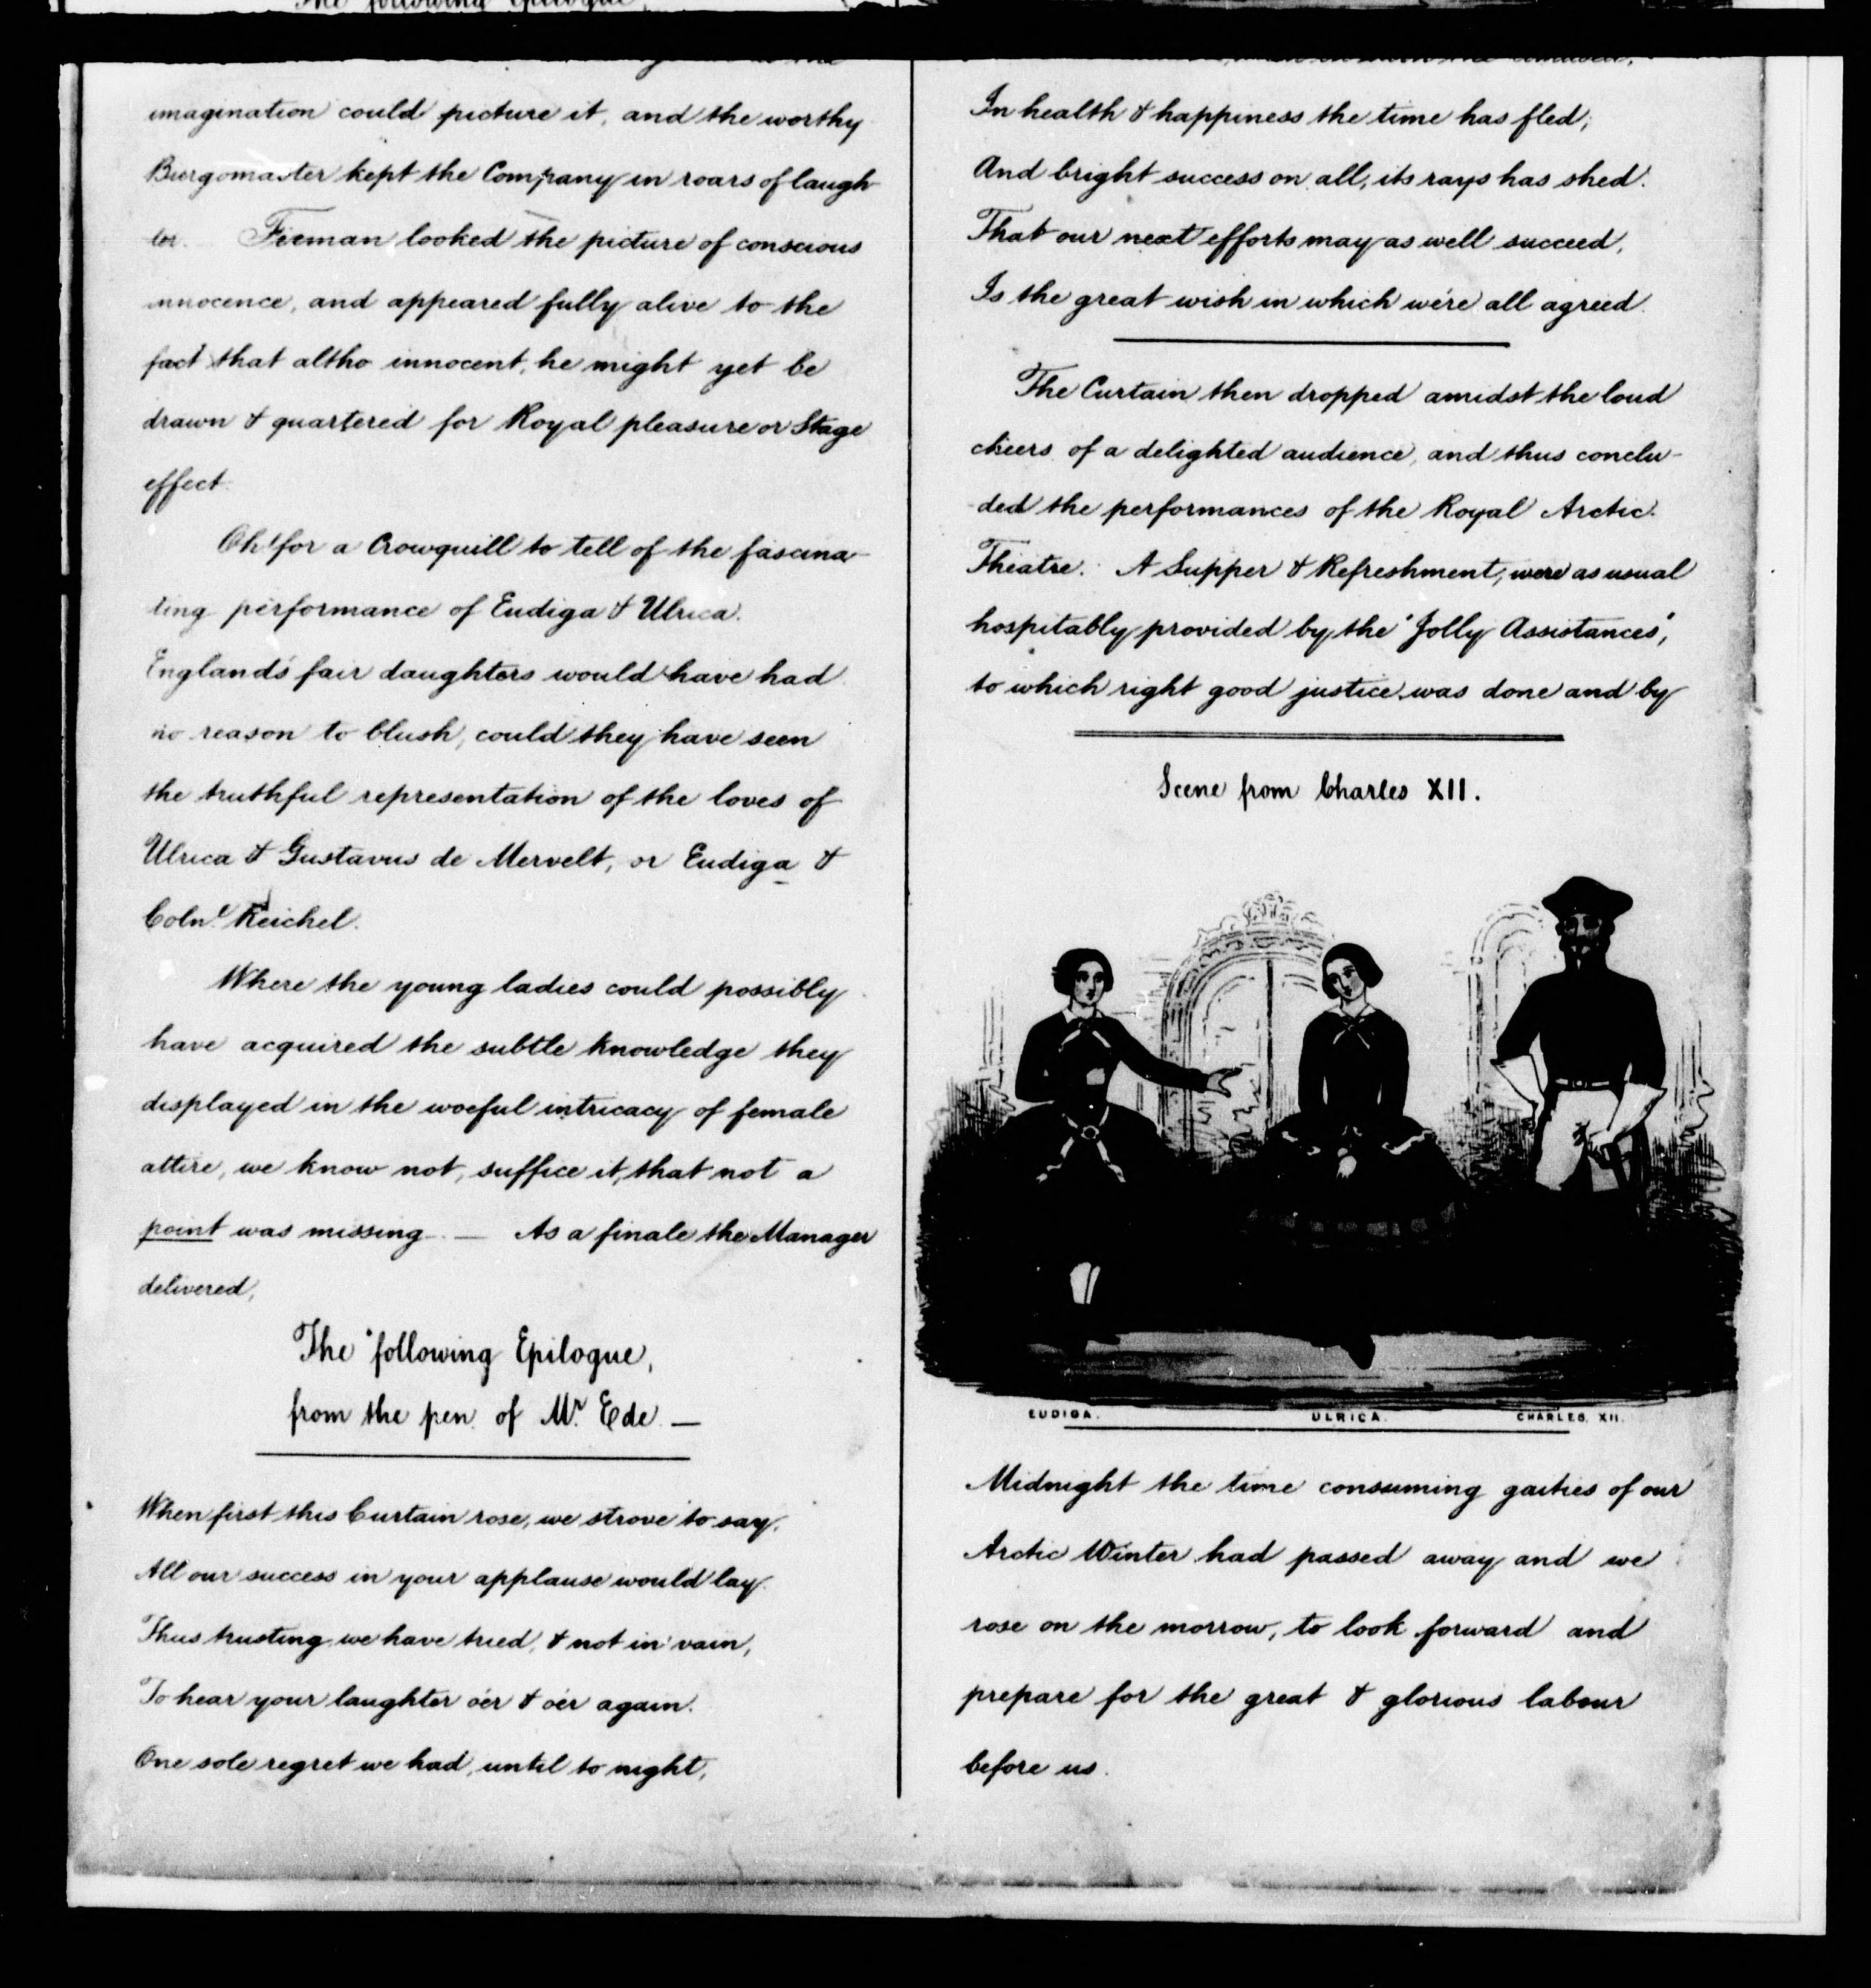 The following Epilogue,
the
imagination could picture it, and the worthy
Burgomaster kept the Company in roars of laugh-
ter. Firman looked the picture of conscious
innocence, and appeared fully alive to the
fact that altho innocent, he might yet be
drawn & quartered for Royal pleasure or Stage
effect.
Oh! for a Crowquill to tell of the fascina-
ting performance of Eudiga & Ulrica.
England's fair daughters would have had
no reason to blush, could they have seen
the truthful representation of the loves of
Ulrica & Gustavus de Mervelt, or Eudiga &
Coln.l Reichel.
Where the young ladies could possibly
have acquired the subtle knowledge they
displayed in the woeful intricacy of female
attire, we know not, suffice it, that not a
point was missing. — As a finale the Manager
delivered,
The following Epilogue,
from the pen of Mr. Ede —
When first this Curtain rose, we strove to say,
All our success in your applause would lay.
Thus trusting we have tried, & not in vain,
To hear your laughter o'er & o'er again.
One sole regret we had, until to night,
In health & happiness the time has fled,
And bright success on all, its rays has shed.
That our next efforts may as well succeed,
Is the great wish in which we're all agreed.
The Curtain then dropped amidst the loud
cheers of a delighted audience, and thus conclu-
ded the performances of the Royal Arctic
Theatre. A Supper & Refreshment, were as usual
hospitably provided by the "Jolly Assistances",
to which right good justice was done and by
Scene from Charles XII.
EUDIGA. ULRICA. CHARLES. XII.
Midnight the time consuming gaities of our
Arctic Winter had passed away and we
rose on the morrow, to look forward and
prepare for the great & glorious labour
before us.